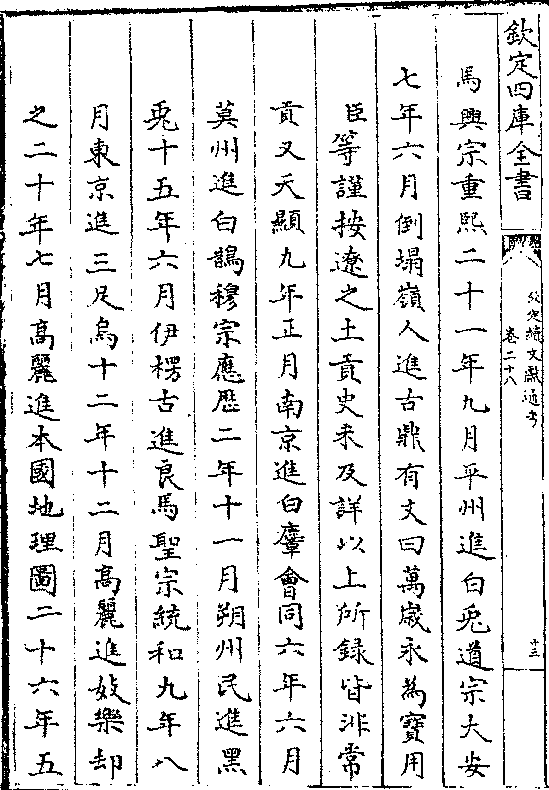 欽定四庫全書
欽定續文獻通考
卷二十八
十三
馬興宗重熙二十一年九月平州進白兎道宗大安
七年六月倒塌嶺人進古鼎有文曰萬歲永為寶用
臣等謹按遼之土貢史未及詳以上所録皆非常
貢又天顯九年正月南京進白麞會同六年六月
莫州進白鵲穆宗應歴二年十一月朔州民進黑
兎十五年六月伊楞古進良馬聖宗統和九年八
月東京進三足烏十二年十二月高麗進妓樂却
之二十年七月高麗進本國地理圖二十六年五